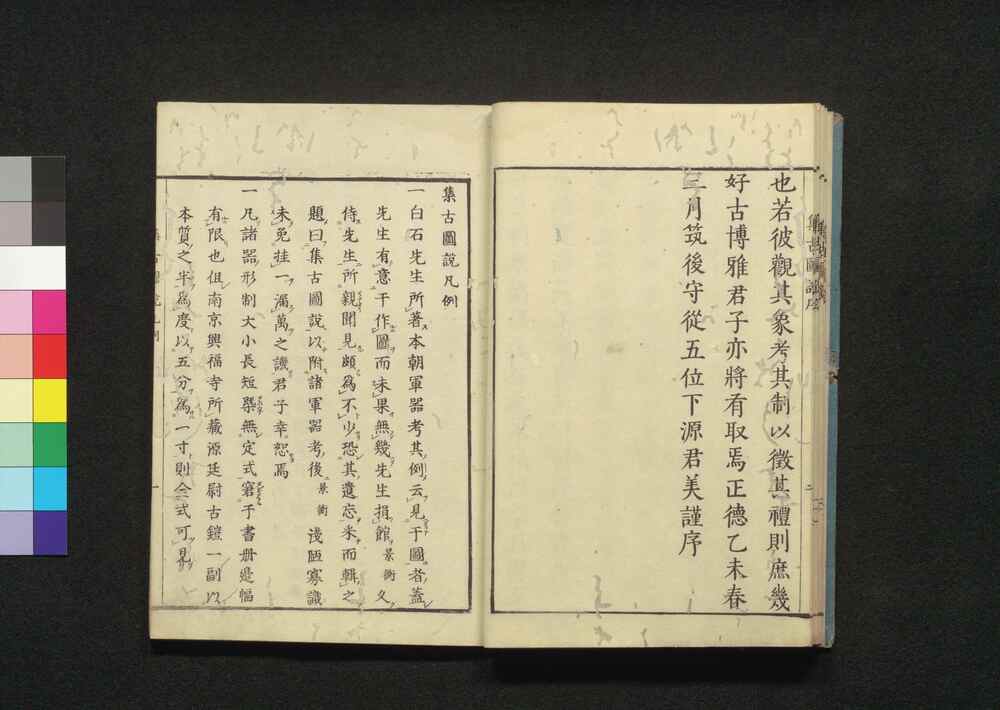 也若彼觀其象考其制以徵其禮則庶幾
好古博雅君子亦將有取焉正德乙未春
三月筑後守從五位下源君美謹序
集古圖說序
集古圖說凡例
一白石先生所著本朝軍器考其例云見于圖者蓋
先生有意于作圖而未果無幾先生捐館景衡久
侍先生所親聞見頗為不少恐其遺忘釆而輯之
題曰集古圖說以附諸軍器考後景衡淺陋寡識
未免挂一漏萬之譏君子幸恕焉
一凡諸器形制大小長短槩無定式窘于書冊邊幅
有限也但南京興福寺所藏源廷尉古鎧一副以
本質之半為度以五分為一寸則全式可見